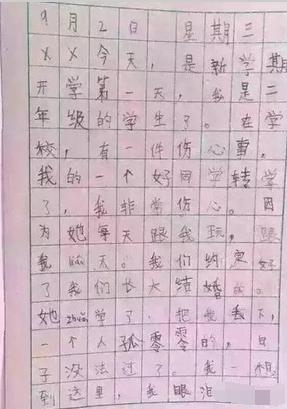 9月2日 星期三
××今天，是新学期
开学第一天，我是二
年级的学生了。在学
校，有一件伤心事。
我的一个好同学转学
了，我非常伤心。因
为她每天跟我玩，跟
我liáo天。我们约定好
了我们长大结婚的。
她zhuǎn学了，把我丢下，
一个人孤零零的，日
子没法过了。我一想
到这里，我眼泪